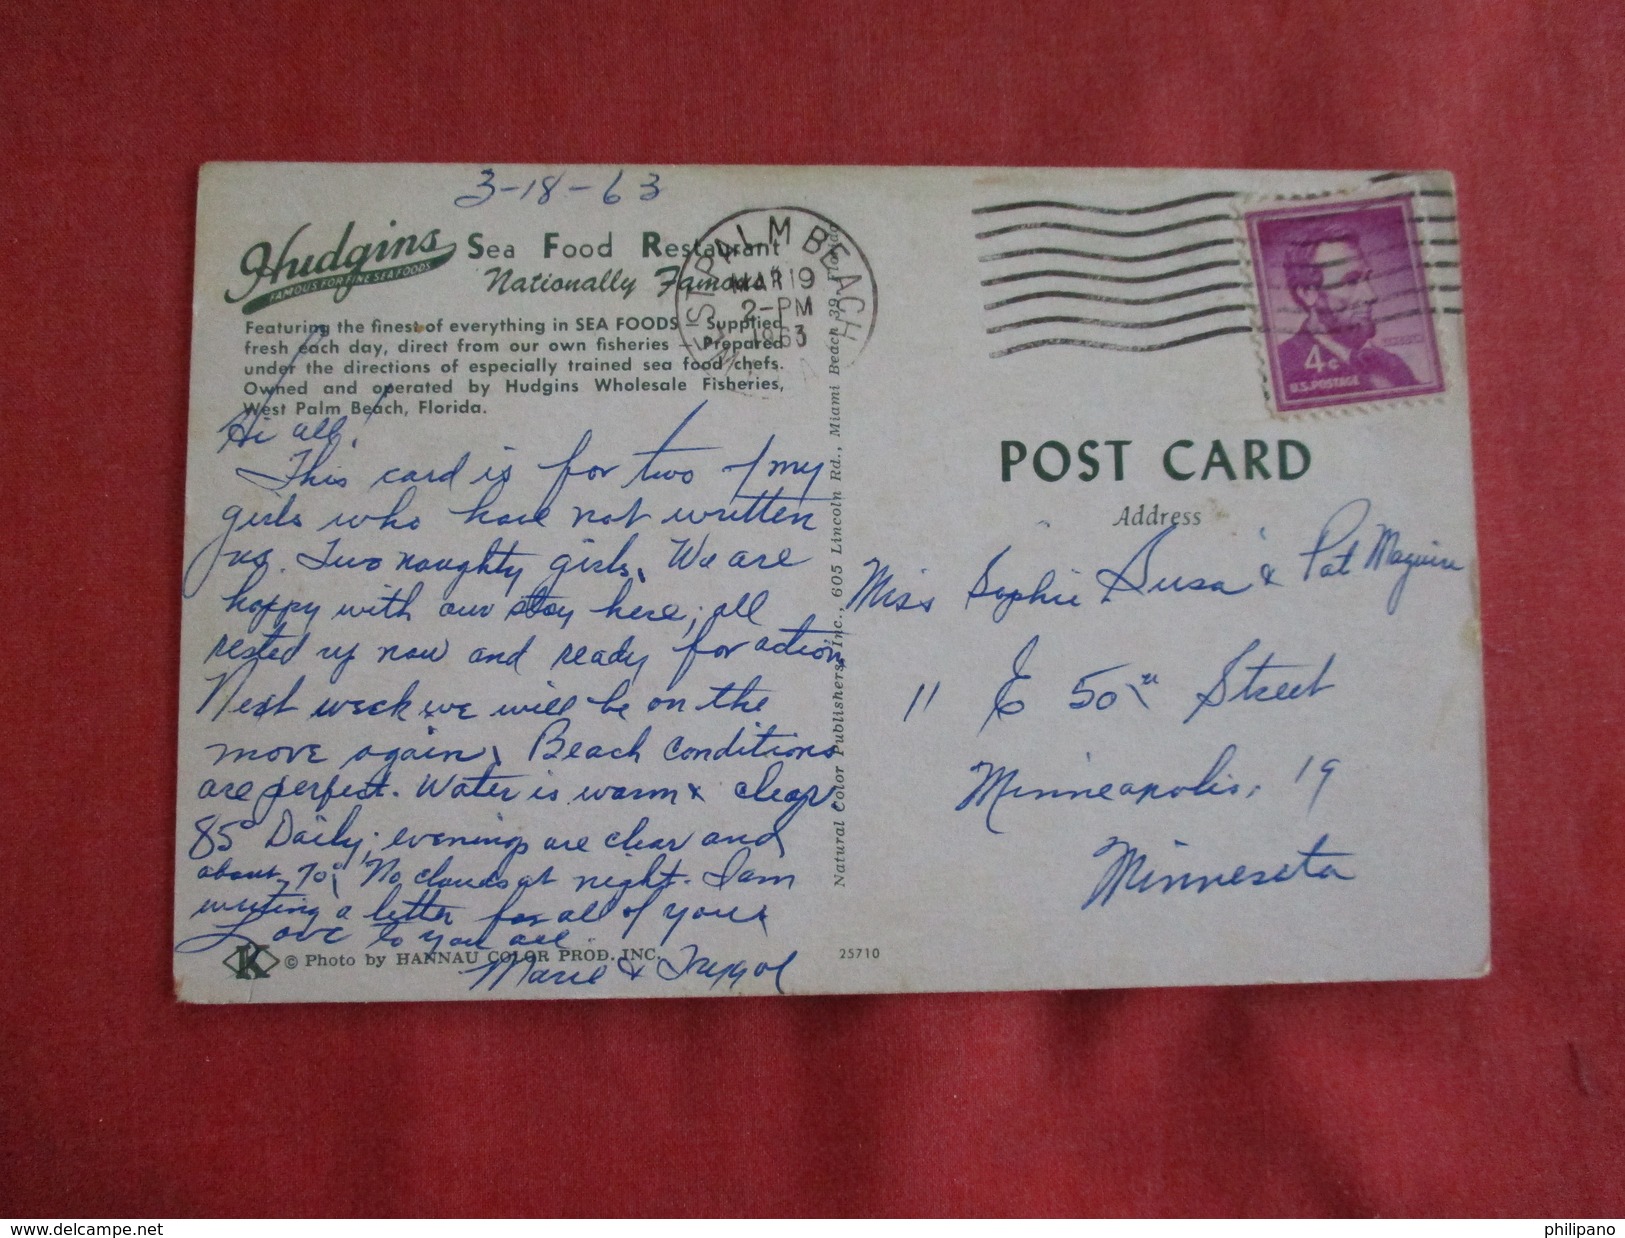 3-18-63
Hudgins Sea Food Restaurant
FAMOUS FOR FINE SEA FOODS
Nationally Famous
Featuring the finest of everything in SEA FOODS — Supplied
fresh each day, direct from our own fisheries — Prepared
under the directions of especially trained sea food chefs.
Owned and operated by Hudgins Wholesale Fisheries,
West Palm Beach, Florida.
Hi all!
This card is for two of my
girls who have not written
us. Two naughty girls. We are
happy with our stay here; all
rested up now and ready for action
Next week we will be on the
move again. Beach conditions
are perfect. Water is warm & clear
85° Daily; evenings are clear and
about 70°. No clouds at night. I am
writing a letter for all of you.
Love to you all
Marie &
K © Photo by HANNAU COLOR PROD. INC.
25710
Natural Color Publishers, Inc., 605 Lincoln Rd., Miami Beach 39, Florida
WEST PALM BEACH
MAR 19
2-PM
1963
4¢
LINCOLN
U.S. POSTAGE
POST CARD
Address
Miss Sophie "Susa" & Pat Maguire
11 E 50th Street
Minneapolis, 19
Minneseta
www.delcampe.net
philipano